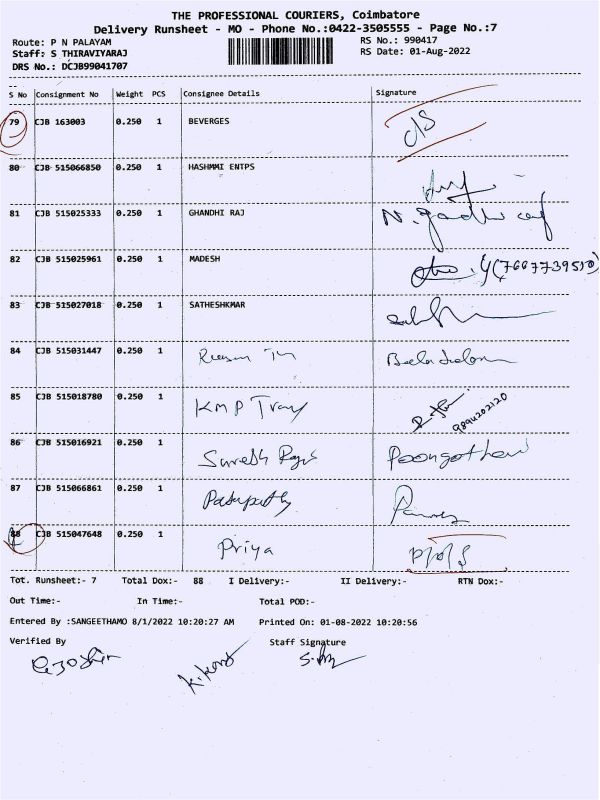 THE PROFESSIONAL COURIERS, Coimbatore
Delivery Runsheet - MO - Phone No.:0422-3505555 - Page No.:7
Route: P N PALAYAM RS No.: 990417
Staff: S THIRAVIYARAJ RS Date: 01-Aug-2022
DRS No.: DCJB99041707
S No Consignment No Weight PCS Consignee Details Signature
79 CJB 163003 0.250 1 BEVERGES
80 CJB 515066850 0.250 1 HASHMMI ENTPS
81 CJB 515025333 0.250 1 GHANDHI RAJ N.
82 CJB 515025961 0.250 1 MADESH
83 CJB 515027018 0.250 1 SATHESHKMAR
84 CJB 515031447 0.250 1
85 CJB 515018780 0.250 1 KMP 9894202120
86 CJB 515016921 0.250 1 Suresh Poongothai
87 CJB 515066861 0.250 1
88 CJB 515047648 0.250 1 Priya
Tot. Runsheet:- 7 Total Dox:- 88 I Delivery:- II Delivery:- RTN Dox:-
Out Time:- In Time:- Total POD:-
Entered By :SANGEETHAMO 8/1/2022 10:20:27 AM Printed On: 01-08-2022 10:20:56
Verified By Staff Signature